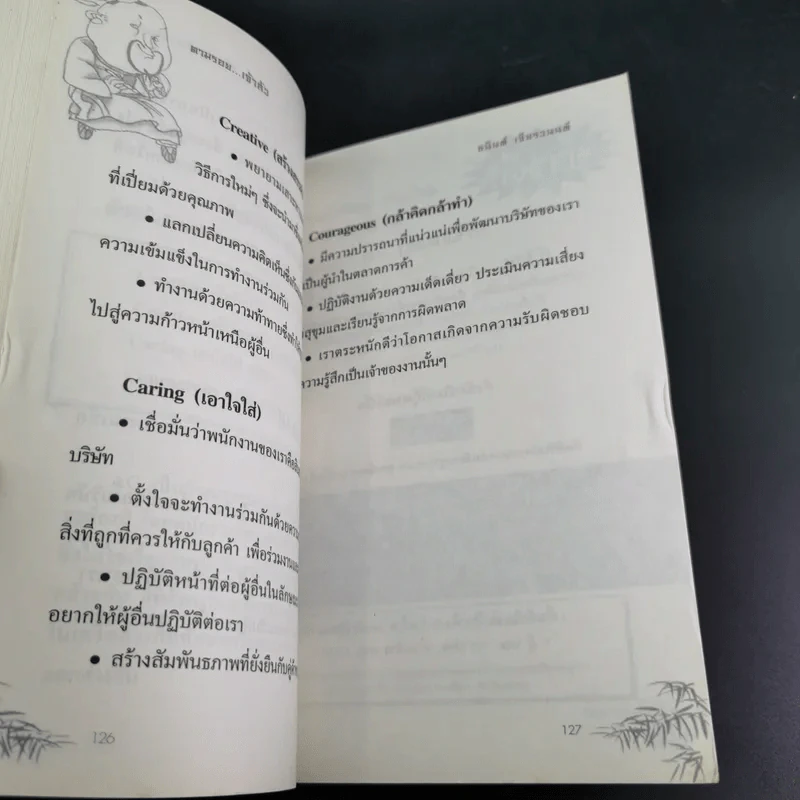 ตามรอย...เจ้าสัว
Creative (สร้างสรรค์
• พยายามเสาะ
วิธีการใหม่ๆ ซึ่งจะนำ
ที่เปี่ยมด้วยคุณภาพ
• แลกเปลี่ยนความคิดเห็นซึ่ง
ความเข้มแข็งในการทำงานร่วมกัน
• ทำงานด้วยความท้าทายซึ่ง
ไปสู่ความก้าวหน้าเหนือผู้อื่น
Caring (เอาใจใส่)
• เชื่อมั่นว่าพนักงานของเราคือ
บริษัท
• ตั้งใจจะทำงานร่วมกันด้วยความ
สิ่งที่ถูกที่ควรให้กับลูกค้า เพื่อร่วมงานและ
• ปฏิบัติหน้าที่ต่อผู้อื่นในลักษณะ
อยากให้ผู้อื่นปฏิบัติต่อเรา
• สร้างสัมพันธภาพที่ยั่งยืนกับคู่ค้า
126
ธนินท์ เจียรวนนท์
Courageous (กล้าคิดกล้าทำ)
• มีความปรารถนาที่แน่วแน่เพื่อพัฒนาบริษัทของเรา
เป็นผู้นำในตลาดการค้า
• ปฏิบัติงานด้วยความเด็ดเดี่ยว ประเมินความเสี่ยง
สุขุมและเรียนรู้จากการผิดพลาด
• เราตระหนักดีว่าโอกาสเกิดจากความรับผิดชอบ
ความรู้สึกเป็นเจ้าของงานนั้นๆ
127